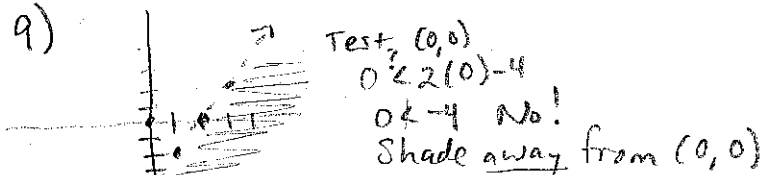 9)
Test (0,0)
0 <? 2(0)-4
0 ≮ -4 No!
Shade away from (0,0)